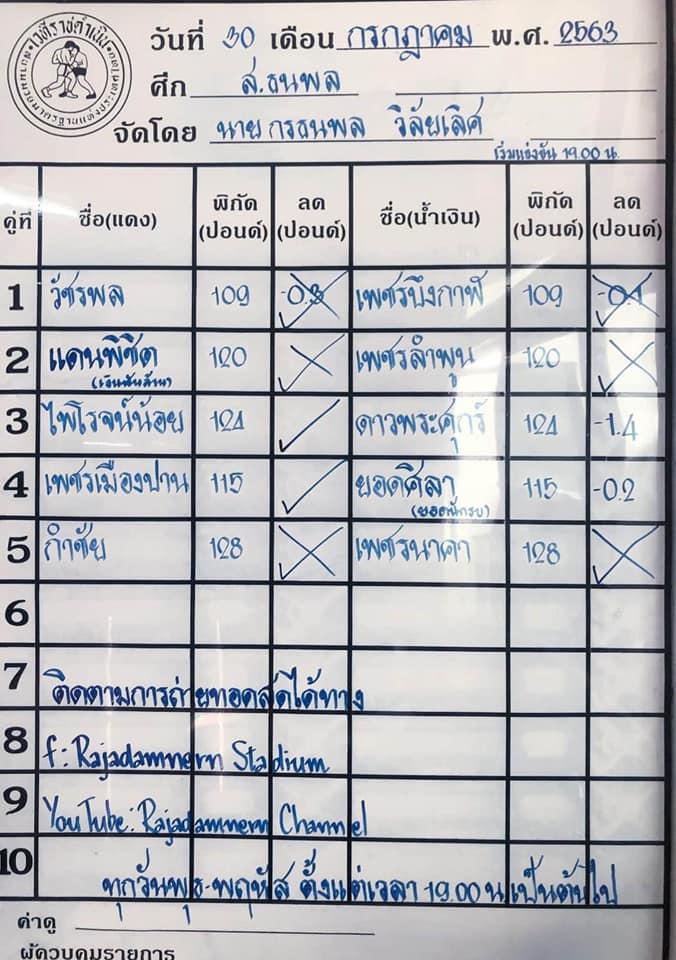 เวทีราชดำเนิน
สนามมวยมาตรฐานแห่งประเทศไทย
วันที่ 30 เดือน กรกฎาคม พ.ศ. 2563
ศึก ส.ธนพล
จัดโดย นาย กรธนพล วิลัยเลิศ
เริ่มแข่งขัน 19.00 น.
คู่ที่ ชื่อ(แดง) พิกัด (ปอนด์) ลด (ปอนด์) ชื่อ(น้ำเงิน) พิกัด (ปอนด์) ลด (ปอนด์)
1 วัชรพล 109 -0.3 เพชรบึงกาฬ 109 -0.1
2 แดนพิชิต 120 เพชรลำพูน 120
(เงินพันล้าน)
3 ไพโรจน์น้อย 124 ดาวพระศุกร์ 124 -1.4
4 เพชรเมืองปาน 115 ยอดศิลา 115 -0.2
(ยอดนักรบ)
5 กำชัย 128 เพชรนาคา 128
6
7 ติดตามการถ่ายทอดสดได้ทาง
8 f: Rajadamnern Stadium
9 YouTube: Rajadamnern Channel
10 ทุกวันพุธ-พฤหัส ตั้งแต่เวลา 19.00 น เป็นต้นไป
ค่าดู
ผู้ควบคุมรายการ